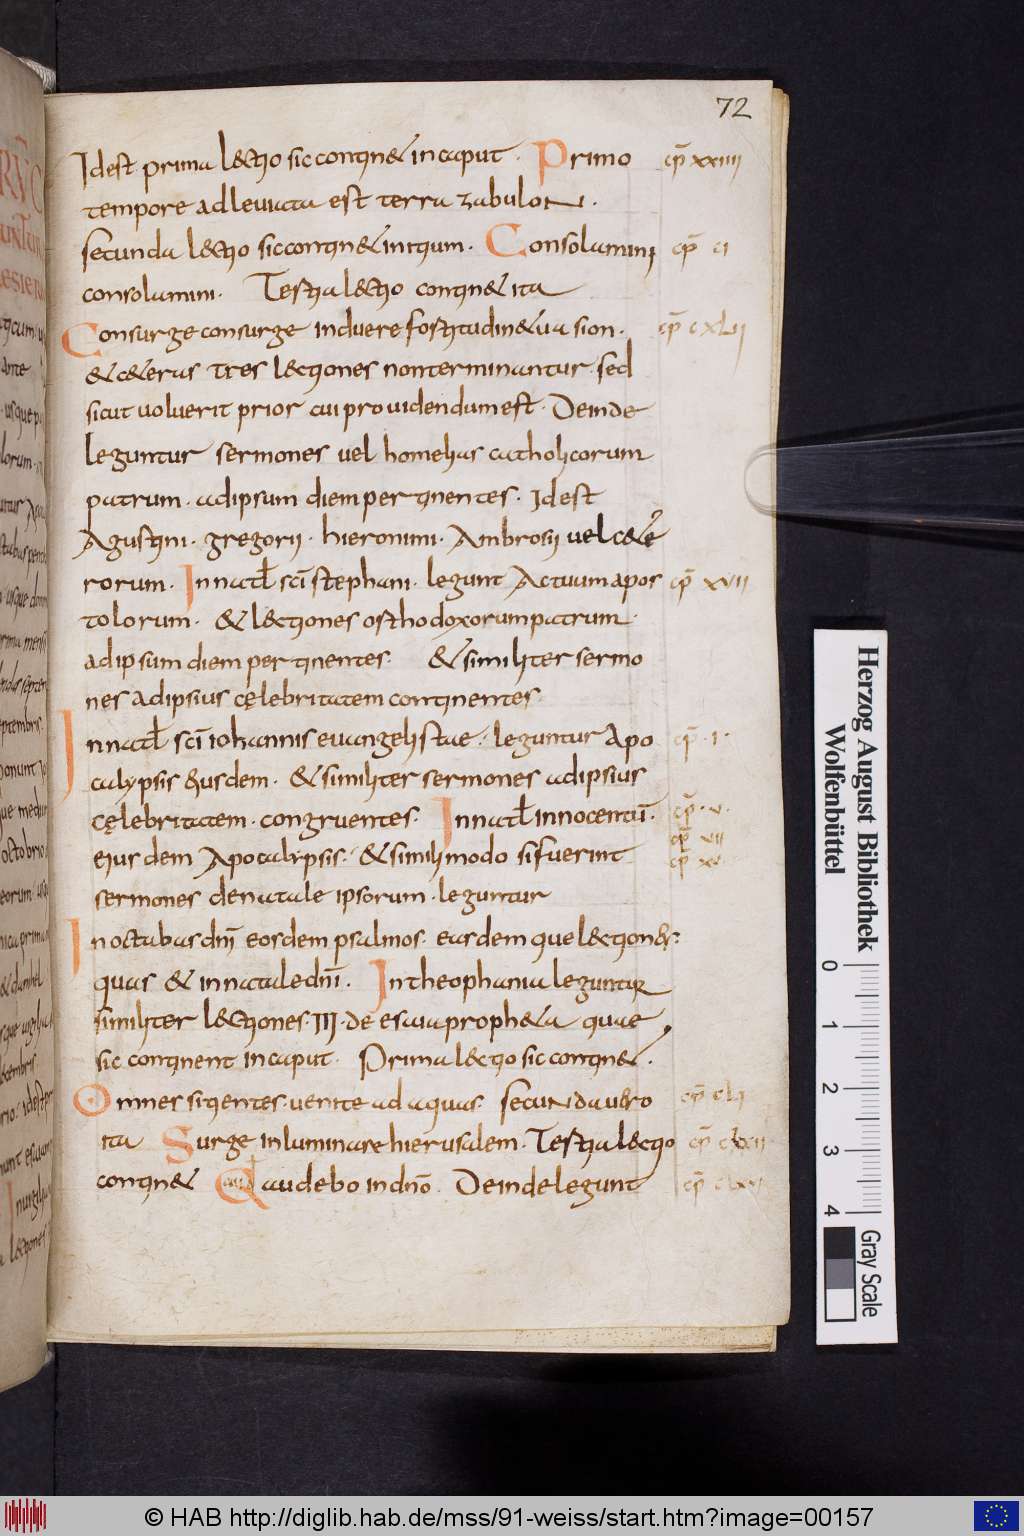 72
Idest prima lectio sic continet in caput. Primo cp̄ xxiiii
tempore adleuiata est terra zabulon.
secunda lectio sic continet initium. Consolamini cp̄
consolamini. Tertia lectio continet ita
Consurge consurge induere fortitudinem tua sion. cp̄
& ceteras tres lectiones non terminantur. sed
sicut uoluerit prior cui prouidendum est. Deinde
leguntur sermones uel homelias catholicorum
patrum. adipsum diem pertinentes. Idest
Agustini. gregorii. hieronimi. Ambrosii uel cete
rorum. In natł sc̄i stephani. legunt Actuum apos cp̄ xvii
tolorum. & lectiones orthodoxorum patrum
adipsum diem pertinentes. & similiter sermo
nes adipsius cęlebritatem continentes.
In natł sc̄i iohannis euangelistae. leguntur Apo cp̄ .i.
calypsis eiusdem. & similiter sermones adipsius
cęlebritatem. congruentes. In natł innocentū. cp̄ .v.
cp̄ vii
eiusdem Apocalypsis. & simili modo si fuerint cp̄
sermones de natale ipsorum. leguntur
In octabas dn̄i eosdem psalmos. easdemque lectiones.
quas & in natale dn̄i. In theophania leguntur
similiter lectiones. III. de esaia propheta quae
sic continent in caput. Prima lectio sic continet.
Omnes sitientes. uenite ad aquas. secunda uero cp̄
ita Surge inluminare hierusalem. Tertia lectio cp̄
continet Gaudebo in dn̄o. Deinde legunt cp̄
Herzog August Bibliothek
Wolfenbüttel
0 1 2 3 4
Gray Scale
© HAB http://diglib.hab.de/mss/91-weiss/start.htm?image=00157